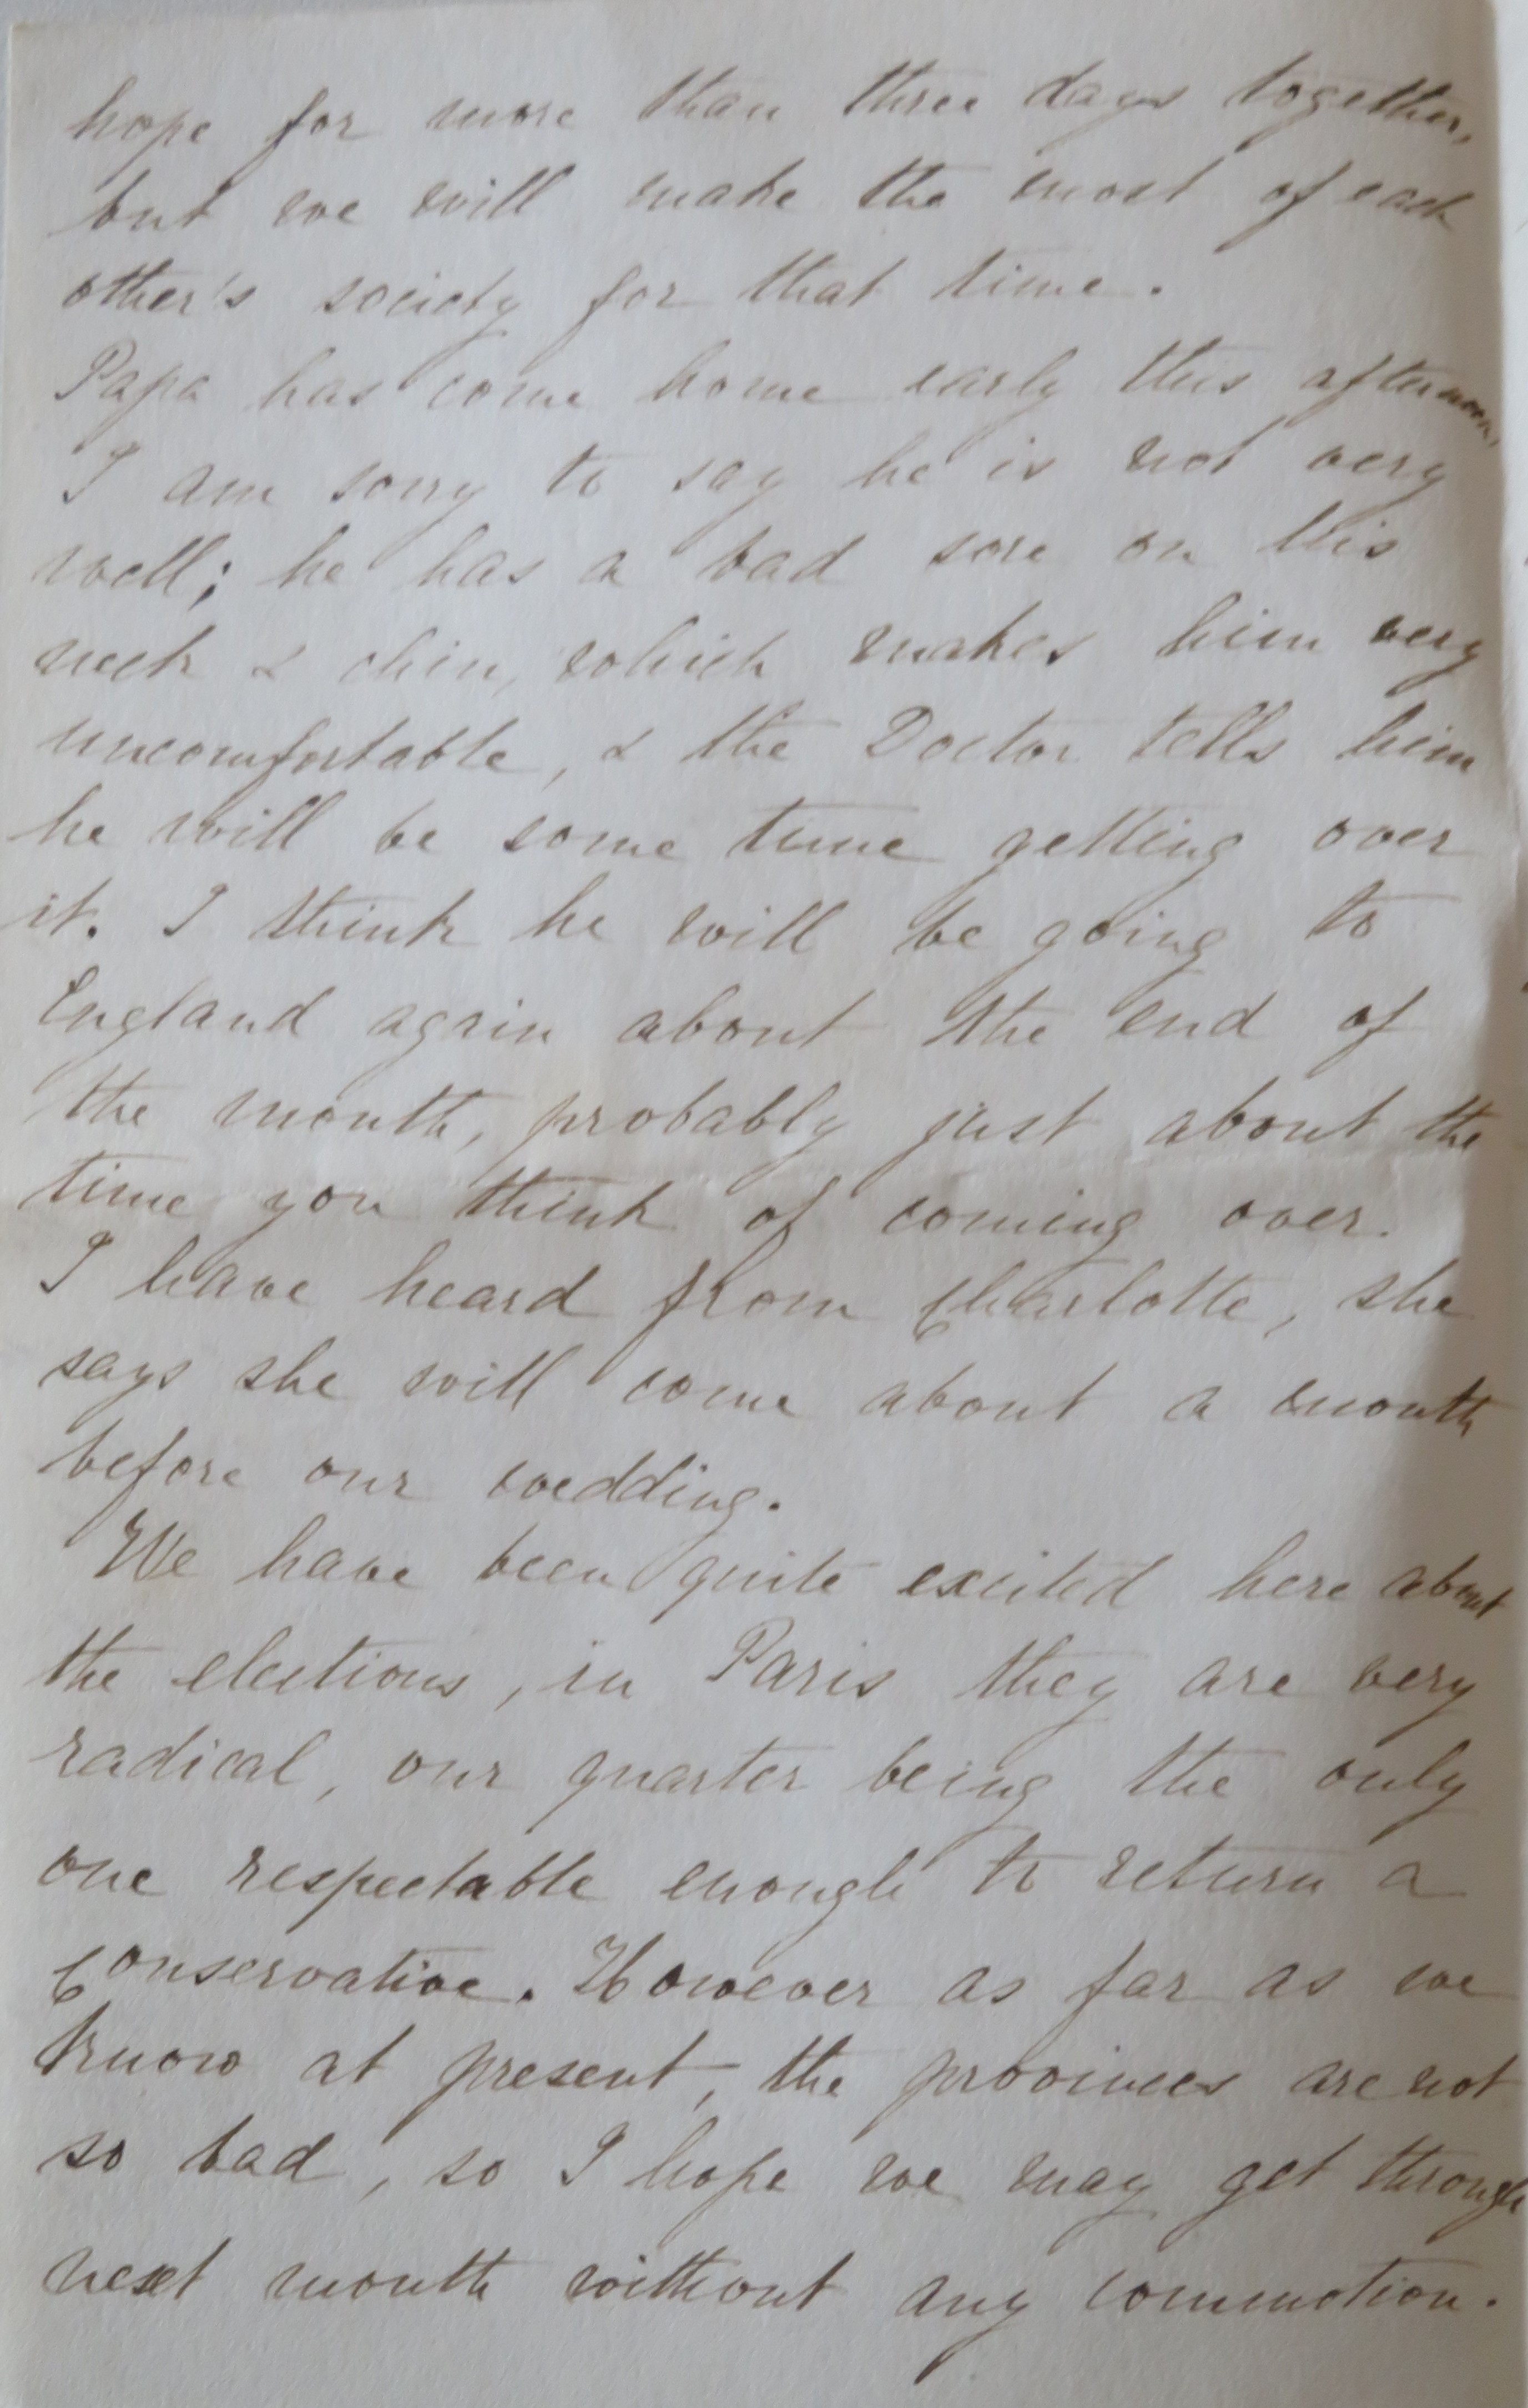 hope for more than three days together,
but we will make the most of each
other's society for that time.
Papa has come home early this afternoon,
I am sorry to say he is not very
well; he has a bad sore on his
neck & chin, which makes him very
uncomfortable, & the Doctor tells him
he will be some time getting over
it. I think he will be going to
England again about the end of
the month, probably just about the
time you think of coming over.
I have heard from Charlotte, she
says she will come about a month
before our wedding.
We have been quite excited here about
the elections, in Paris they are very
radical, our quarter being the only
one respectable enough to return a
Conservative. However as far as we
know at present, the provinces are not
so bad, so I hope we may get through
next month without any commotion.